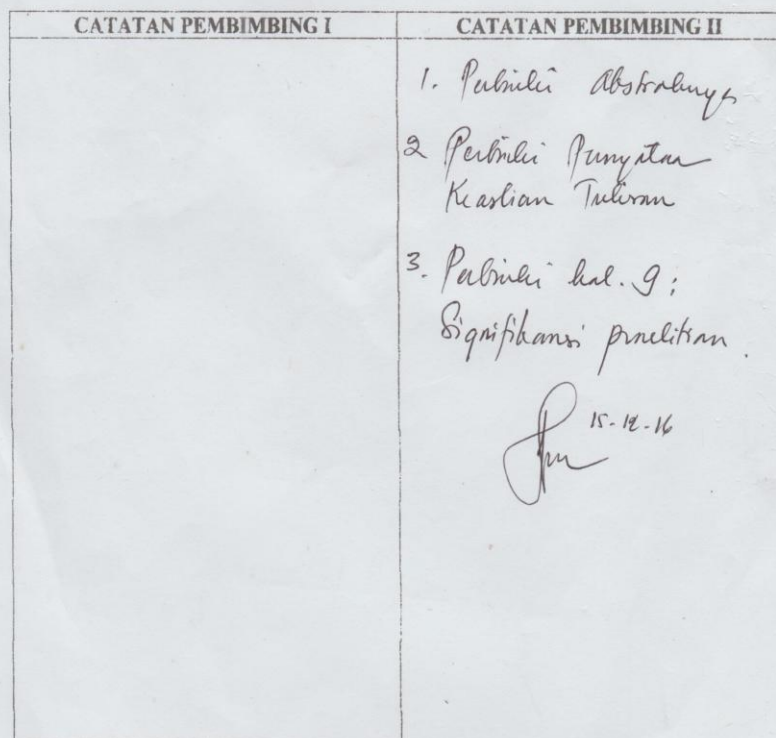 CATATAN PEMBIMBING I
CATATAN PEMBIMBING II
1. Perbaiki Abstraknya
2 Perbaiki Pernyataan
Keaslian Tulisan
3. Perbaiki hal. 9 :
Signifikansi penelitian.
15-12-16